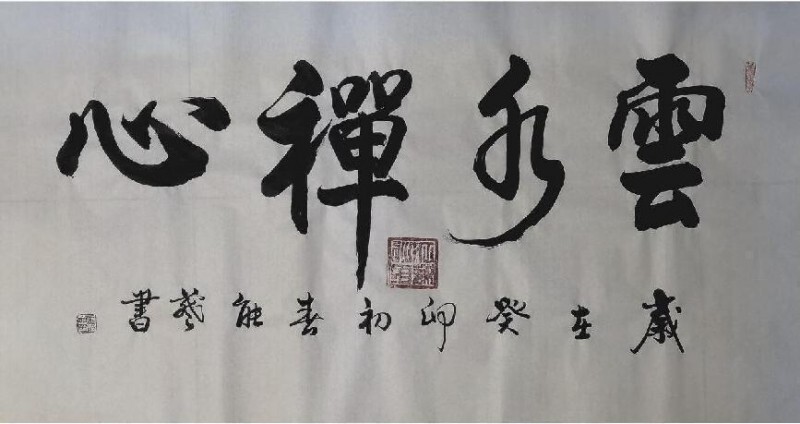 雲水禪心
歲在癸卯初春能藝書